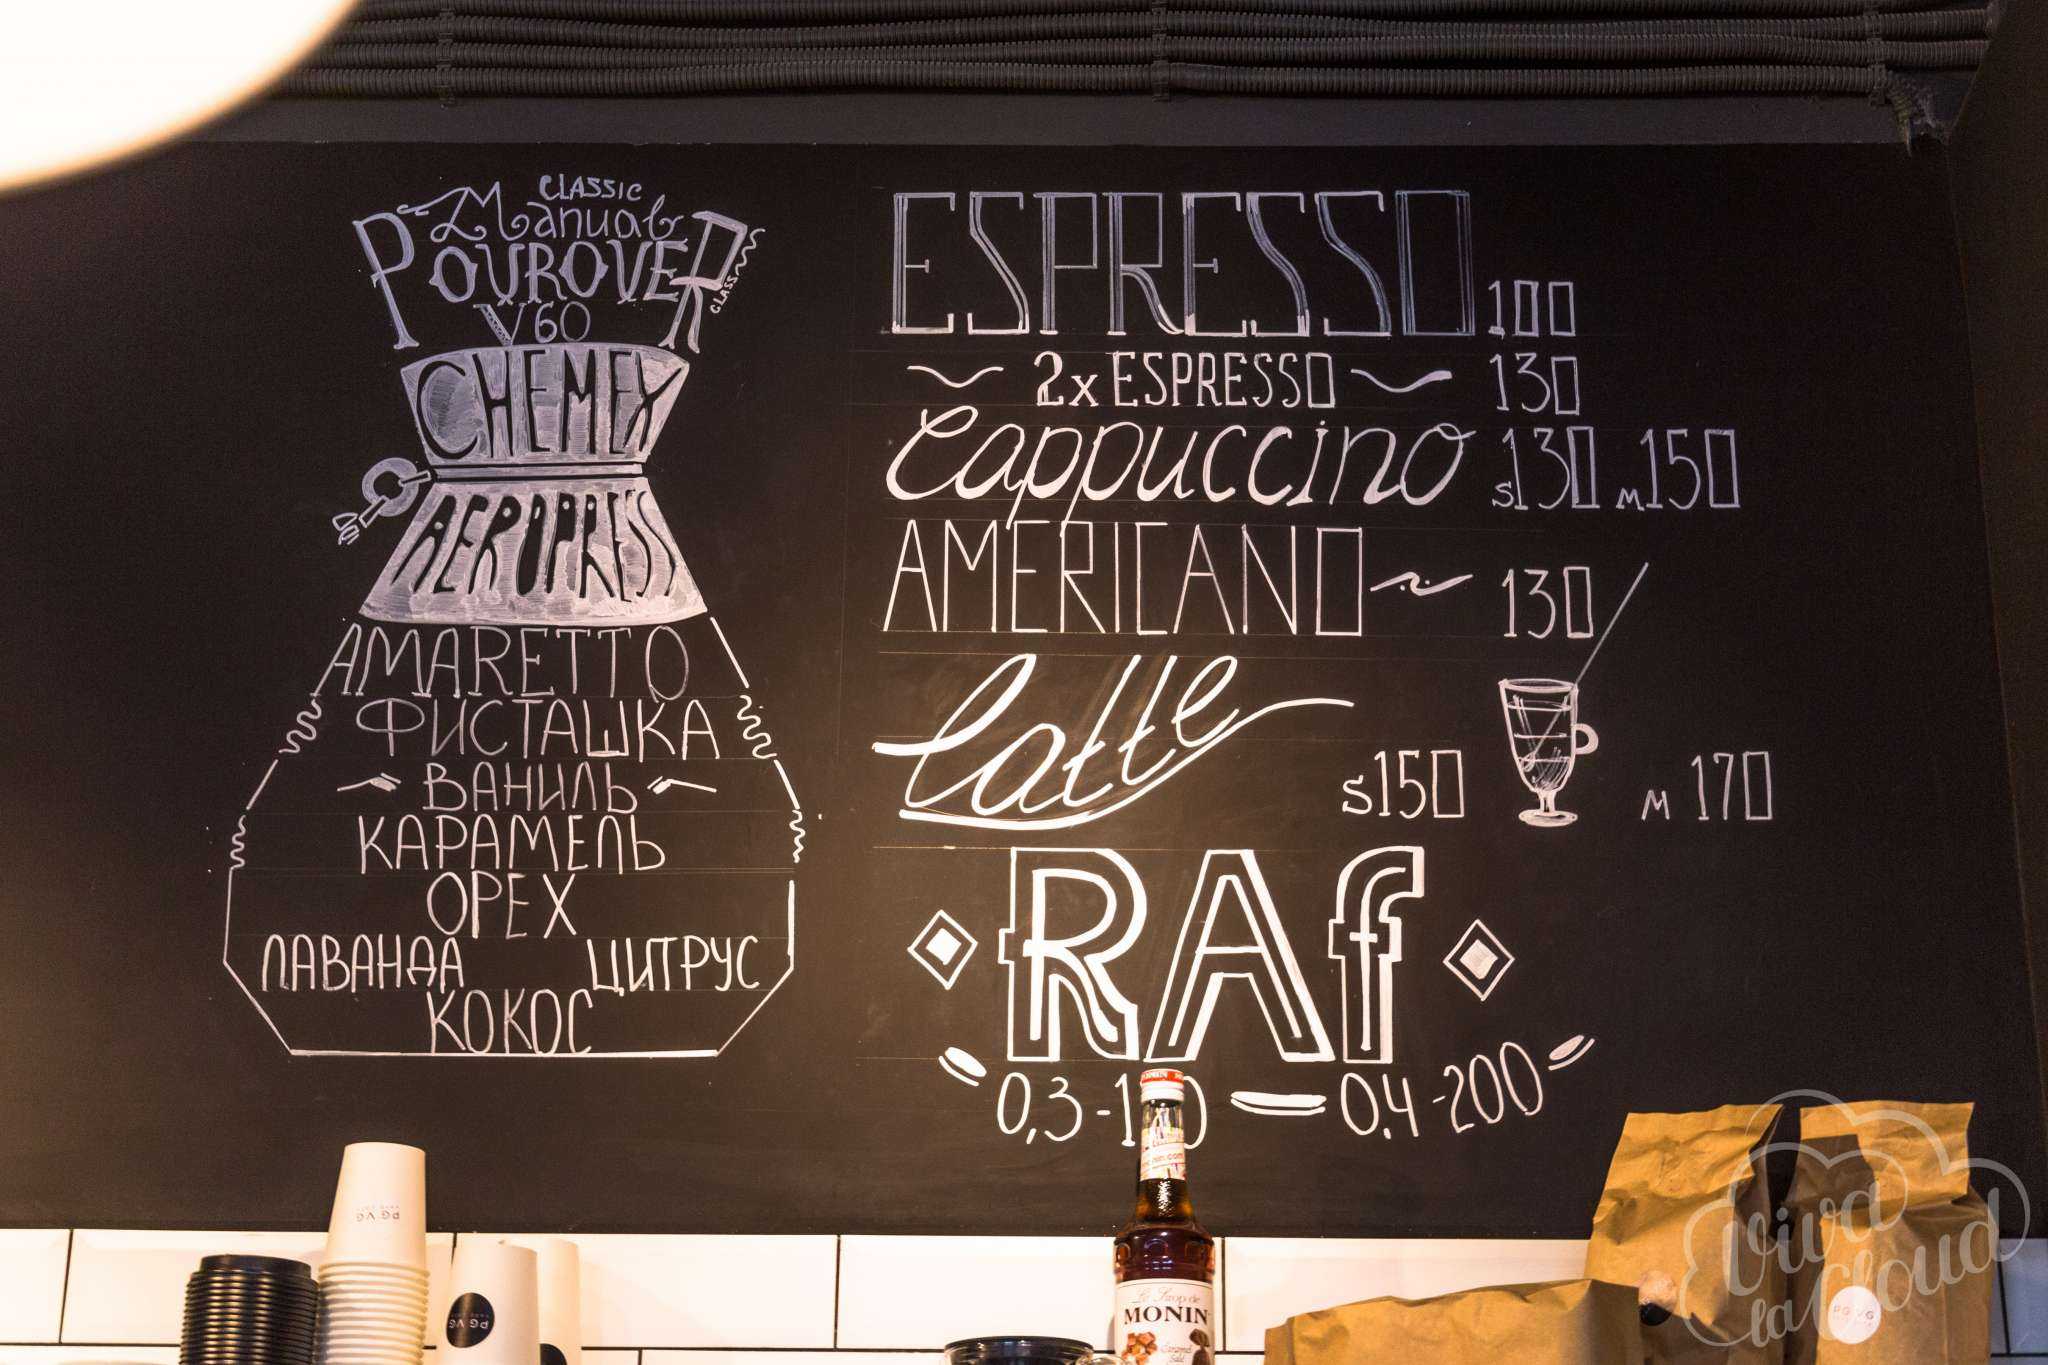 CLASSIC
Manual
POUROVER
GLASS
V60
CHEMEX
AEROPRESS
AMARETTO
ФИСТАШКА
ВАНИЛЬ
КАРАМЕЛЬ
ОРЕХ
ЛАВАНДА ЦИТРУС
КОКОС
ESPRESSO 100
2x ESPRESSO 130
Cappuccino S130 M150
AMERICANO 130
Latte S150 M 170
RAf
0,4-200
PG VG
PG VG
Le Sirop de
MONIN
PG VG
Viva
la Cloud